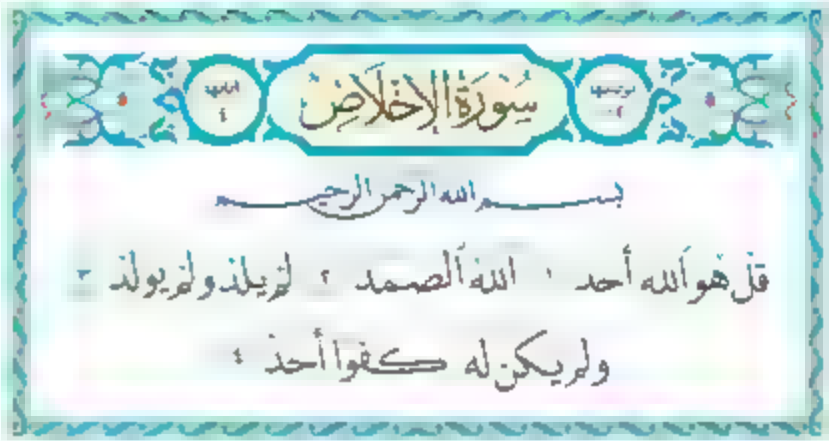 سُورَةُ الإِخْلَاصِ
آياتها ٤
بسم الله الرحمن الرحيم
قل هو ٱلله أحد ١ ٱلله ٱلصمد ٢ لم يلد ولم يولد ٣
ولم يكن له كفوا أحد ٤